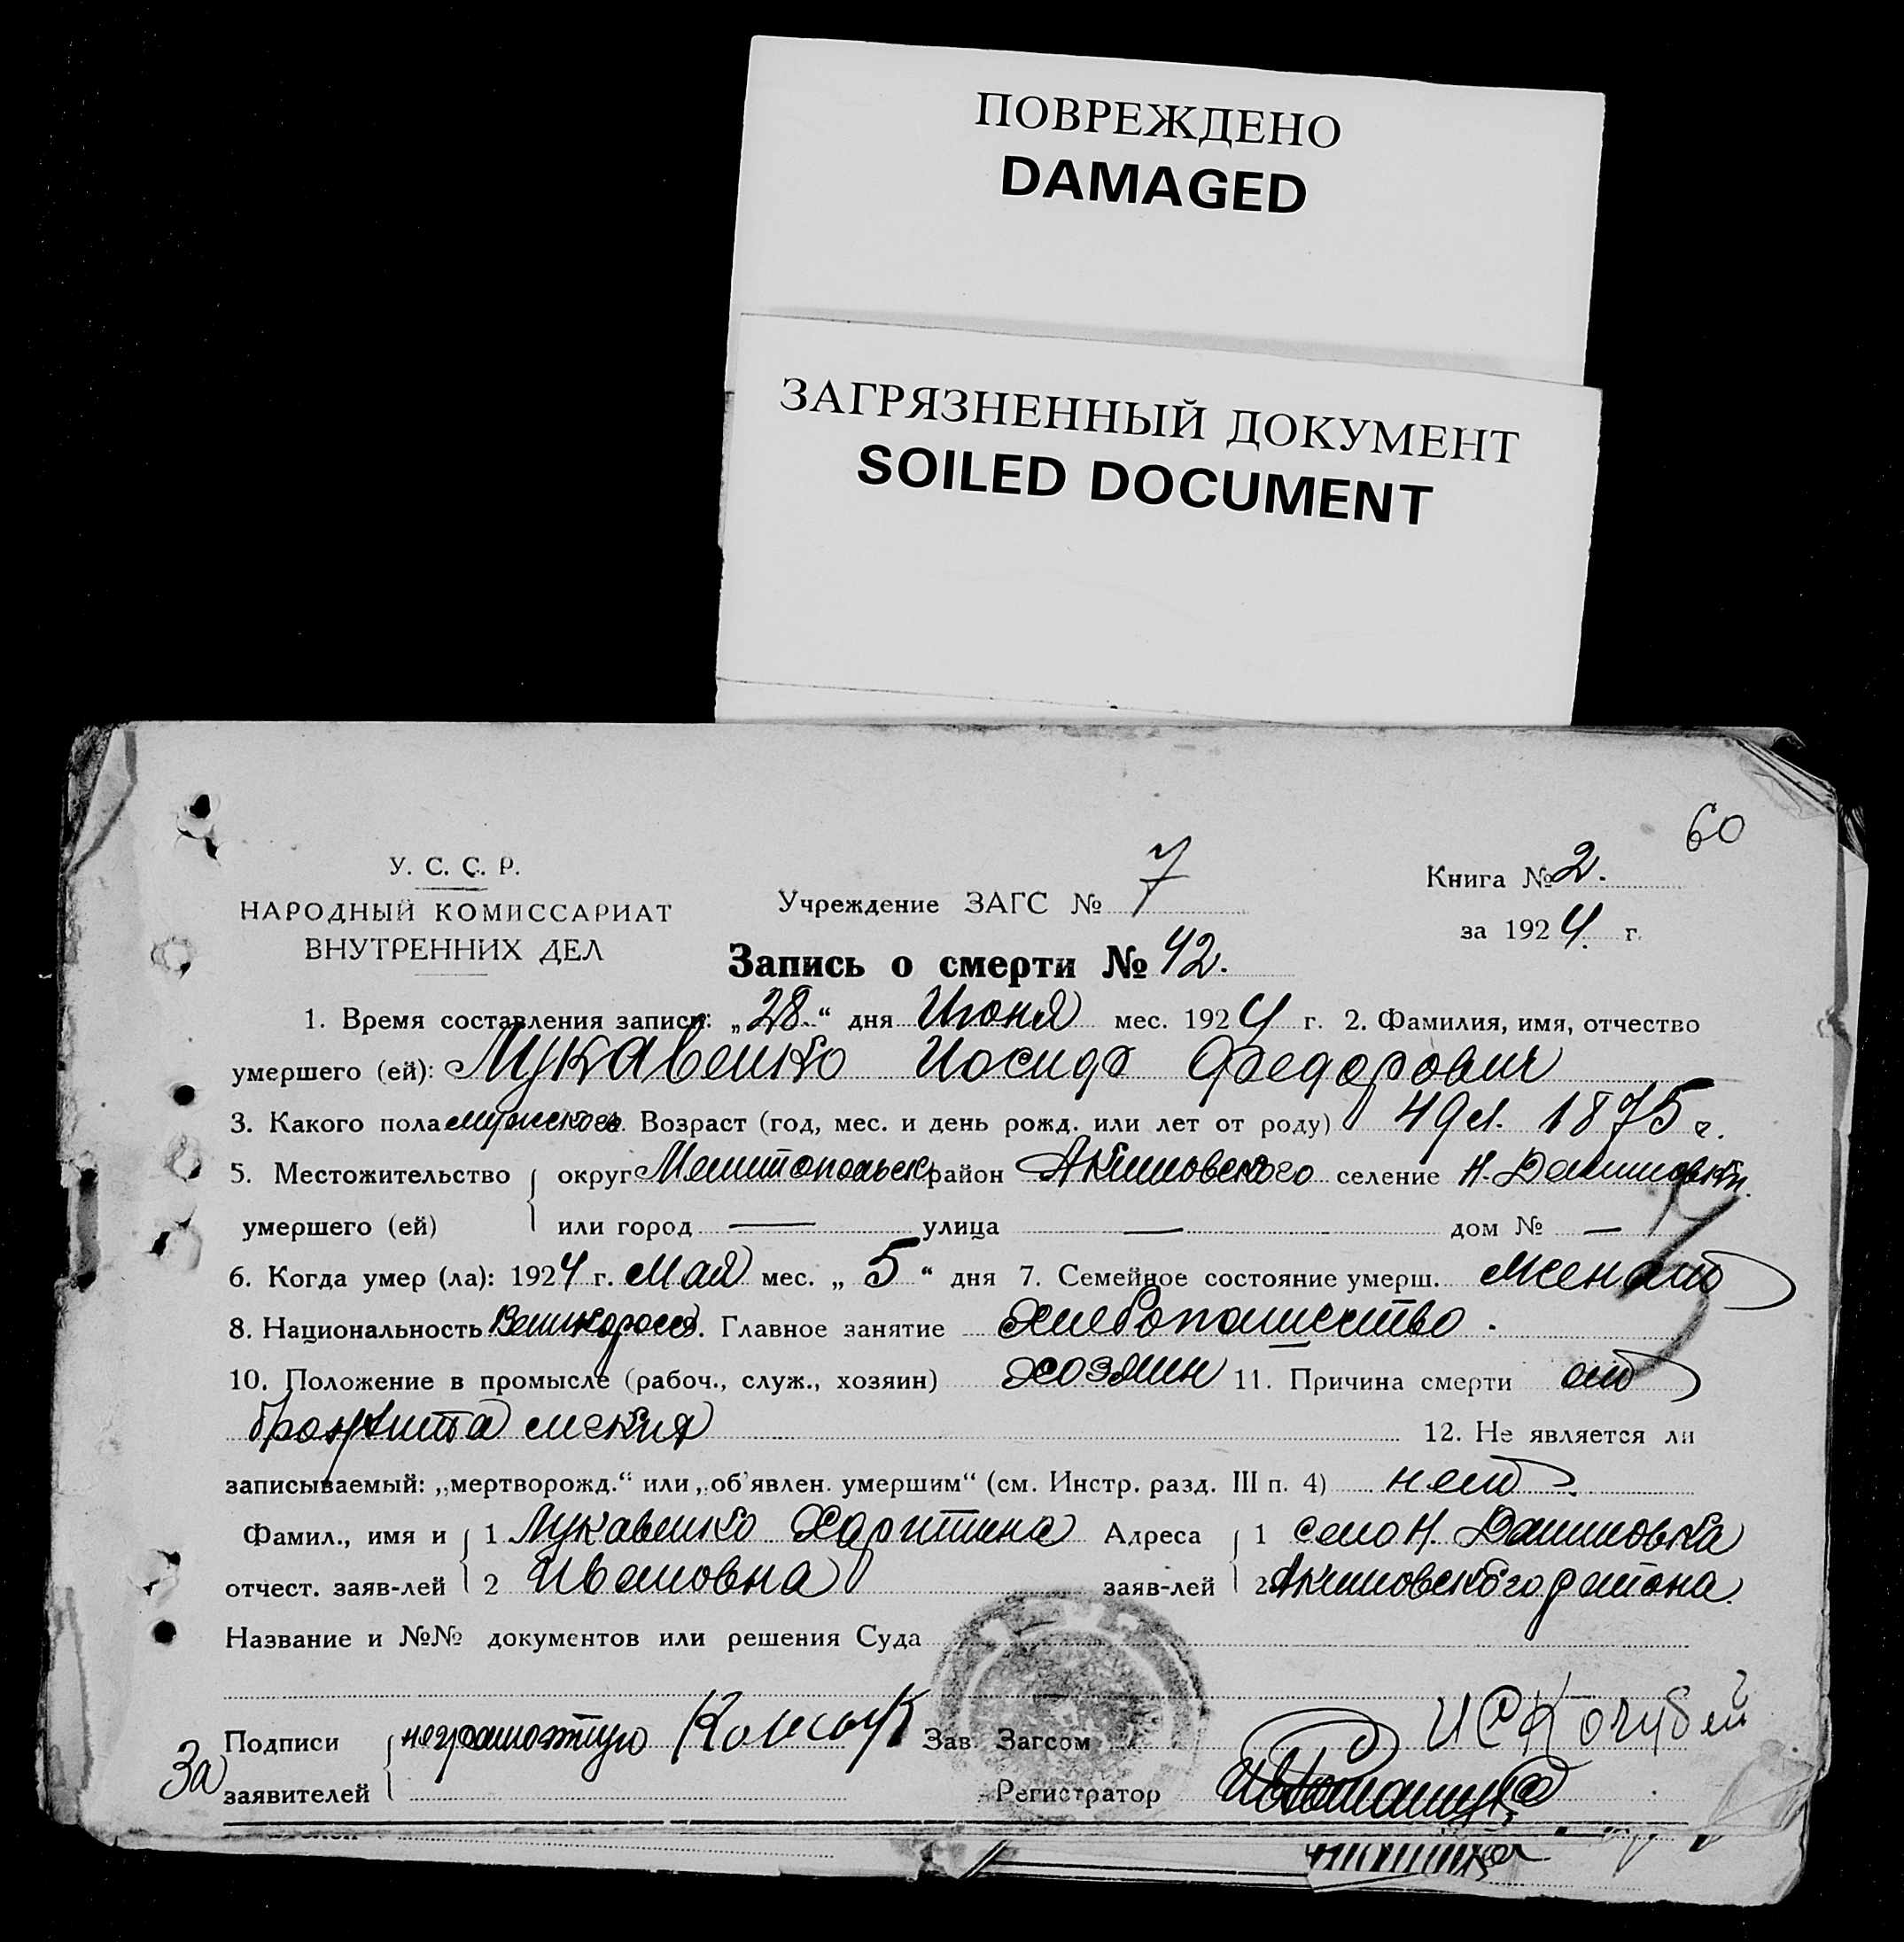 ПОВРЕЖДЕНО
DAMAGED
ЗАГРЯЗНЕННЫЙ ДОКУМЕНТ
SOILED DOCUMENT
60
У. С. С. Р.
НАРОДНЫЙ КОМИССАРИАТ
ВНУТРЕННИХ ДЕЛ
Учреждение ЗАГС № 7
Книга № 2.
за 1924 г.
Запись о смерти № 42.
1. Время составления записи: „28.“ дня Июня мес. 1924 г. 2. Фамилия, имя, отчество
умершего (ей): Лукавенко Иосиф Федорович
3. Какого пола мужского. Возраст (год, мес. и день рожд. или лет от роду) 49 л. 1875 г.
5. Местожительство округ Мелитопольск район Акимовского селение Н. Даниловки.
умершего (ей) или город — улица — дом № —
6. Когда умер (ла): 1924 г. Мая мес. „ 5 “ дня 7. Семейное состояние умерш. женат
8. Национальность Великоросс 9. Главное занятие Хлебопашество.
10. Положение в промысле (рабоч., служ., хозяин) хозяин 11. Причина смерти от
бронхита 12. Не является ли
записываемый: „мертворожд.“ или „об'явлен. умершим“ (см. Инстр. разд. III п. 4) нет.
Фамил., имя и 1 Лукавенко Харитина Адреса 1 село Н. Даниловка
отчест. заяв-лей 2 Ивановна заяв-лей 2 Акимовского района.
Название и №№ документов или решения Суда
Подписи неграмотную Зав Загсом Кочубей
За заявителей Регистратор